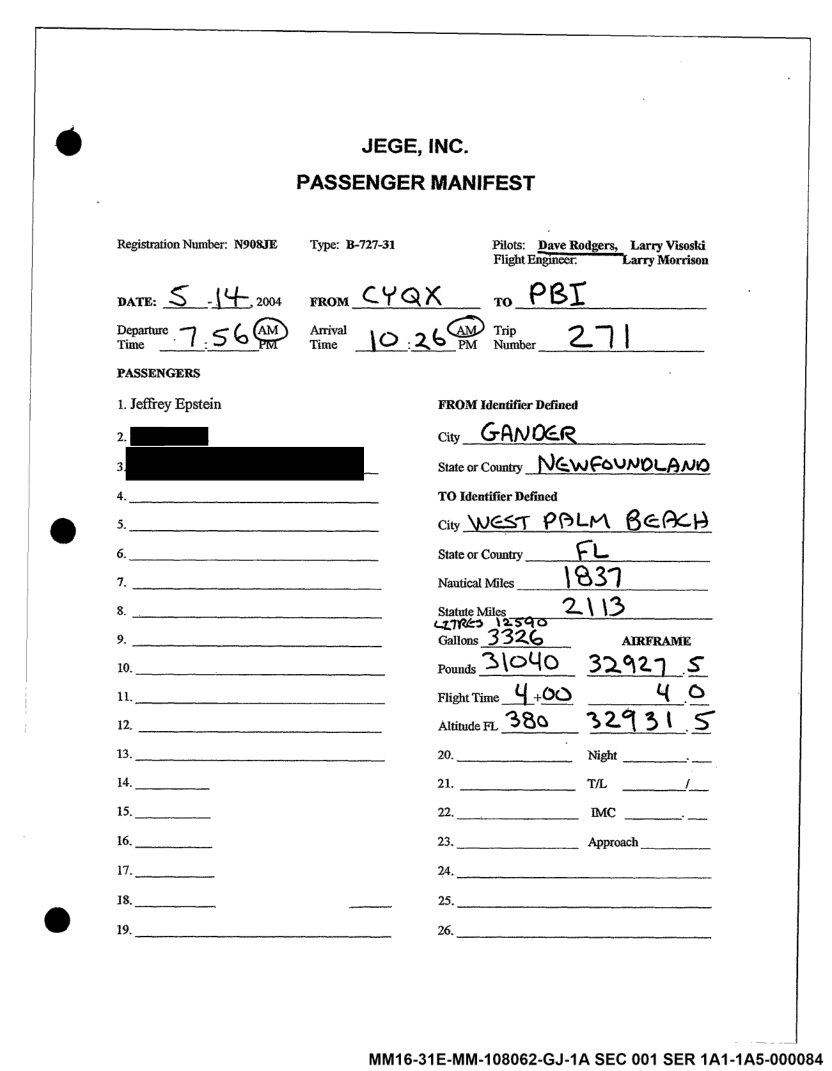 JEGE, INC.
PASSENGER MANIFEST
Registration Number: N908JE Type: B-727-31 Pilots: Dave Rodgers, Larry Visoski
Flight Engineer: Larry Morrison
DATE: 5 -14, 2004 FROM CYQX TO PBI
Departure Time 7:56 AM PM Arrival Time 10:26 AM PM Trip Number 271
PASSENGERS
1. Jeffrey Epstein FROM Identifier Defined
2. City GANDER
3. State or Country NEWFOUNDLAND
4. TO Identifier Defined
5. City WEST PALM BEACH
6. State or Country FL
7. Nautical Miles 1837
8. Statute Miles 2113
LITRES 12590
9. Gallons 3326 AIRFRAME
10. Pounds 31040 32927.5
11. Flight Time 4+00 4 0
12. Altitude FL 380 32931.5
13. 20. Night .
14. 21. T/L /
15. 22. IMC .
16. 23. Approach
17. 24.
18. 25.
19. 26.
MM16-31E-MM-108062-GJ-1A SEC 001 SER 1A1-1A5-000084